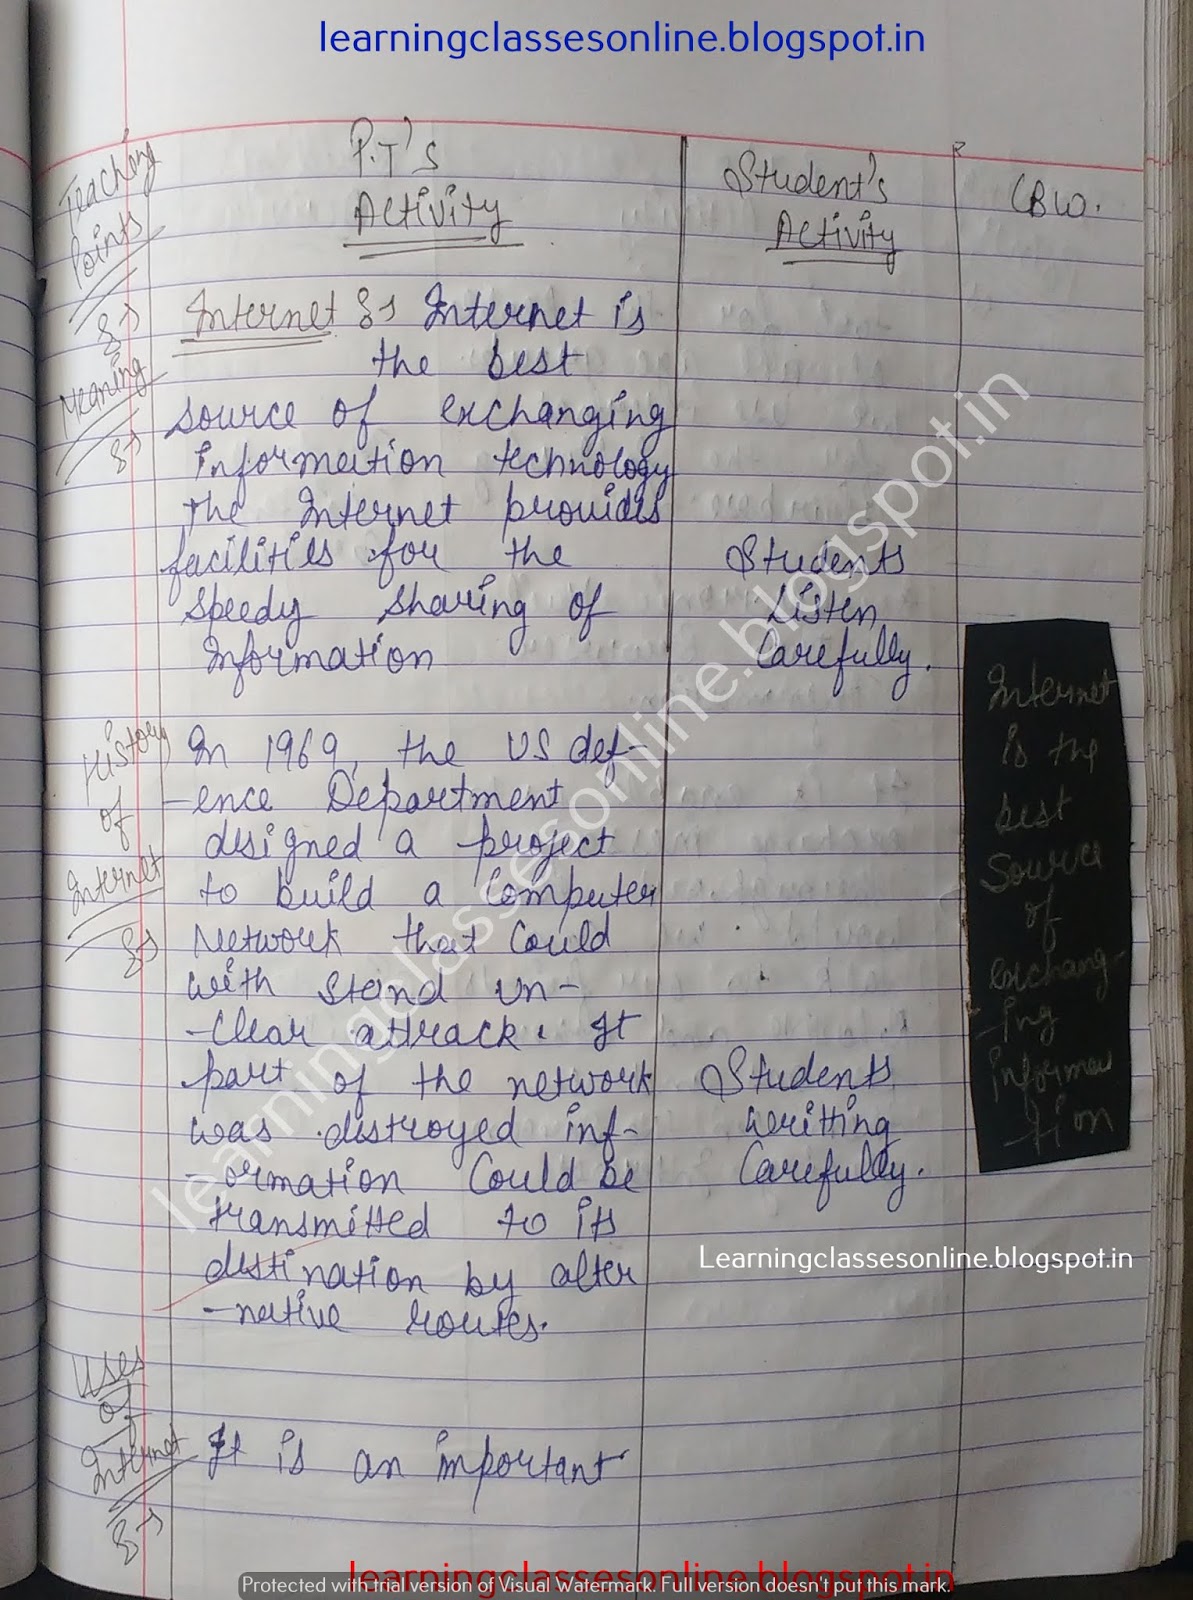 learningclassesonline.blogspot.in
Teaching
Points
P.T's
Activity
Student's
Activity
CBW.
Meaning
Internet :- Internet is
the best
source of exchanging
information technology
The Internet provides
facilities for the
speedy sharing of
Information
Students
Listen
Carefully.
History
of
Internet
:-
In 1969, the US def-
-ence Department
designed a project
to build a computer
Network that could
with stand un-
-clear attrack. It
part of the network
was destroyed inf-
-ormation could be
transmitted to its
destination by alter
-native routes.
Students
writting
Carefully.
Internet
is the
best
Source
of
exchang-
-ing
informa
-tion
Learningclassesonline.blogspot.in
Uses
of
Internet
:-
It is an important
learningclassesonline.blogspot.in
learningclassesonline.blogspot.in
Protected with trial version of Visual Watermark. Full version doesn't put this mark.